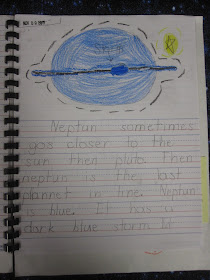 Storm
Neptun sometimes
gos closer to the
sun then pluto. Then
neptun is the last
plannet in line. Neptun
is blue. It has a
dark blue storm It